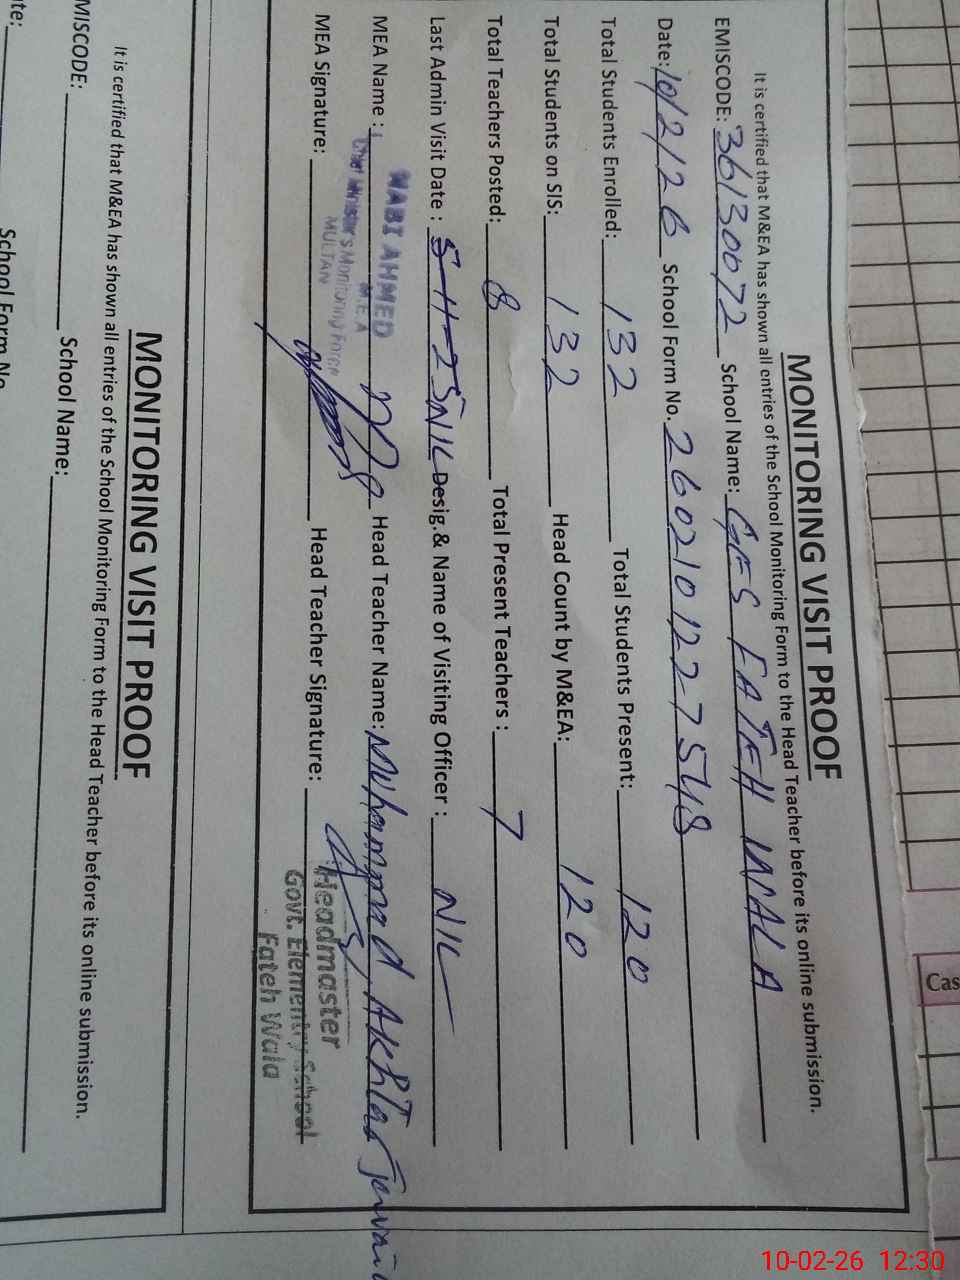 MONITORING VISIT PROOF
It is certified that M&EA has shown all entries of the School Monitoring Form to the Head Teacher before its online submission.
EMISCODE: 36130072 School Name: GES FATEH WALA
Date: 10/2/26 School Form No. 2602101227548
Total Students Enrolled: 132 Total Students Present: 120
Total Students on SIS: 132 Head Count by M&EA: 120
Total Teachers Posted: 8 Total Present Teachers : 7
Last Admin Visit Date : NIL Desig.& Name of Visiting Officer : NIL
MEA Name : Head Teacher Name: Muhammad Akhtar
NABI AHMED
M.E.A
Chief Minister's Monitoring Force
MULTAN
MEA Signature: Head Teacher Signature:
Headmaster
Govt. Elementry School
Fateh Wala
MONITORING VISIT PROOF
It is certified that M&EA has shown all entries of the School Monitoring Form to the Head Teacher before its online submission.
MISCODE: School Name:
ate: School Form No
Cas
10-02-26 12:30